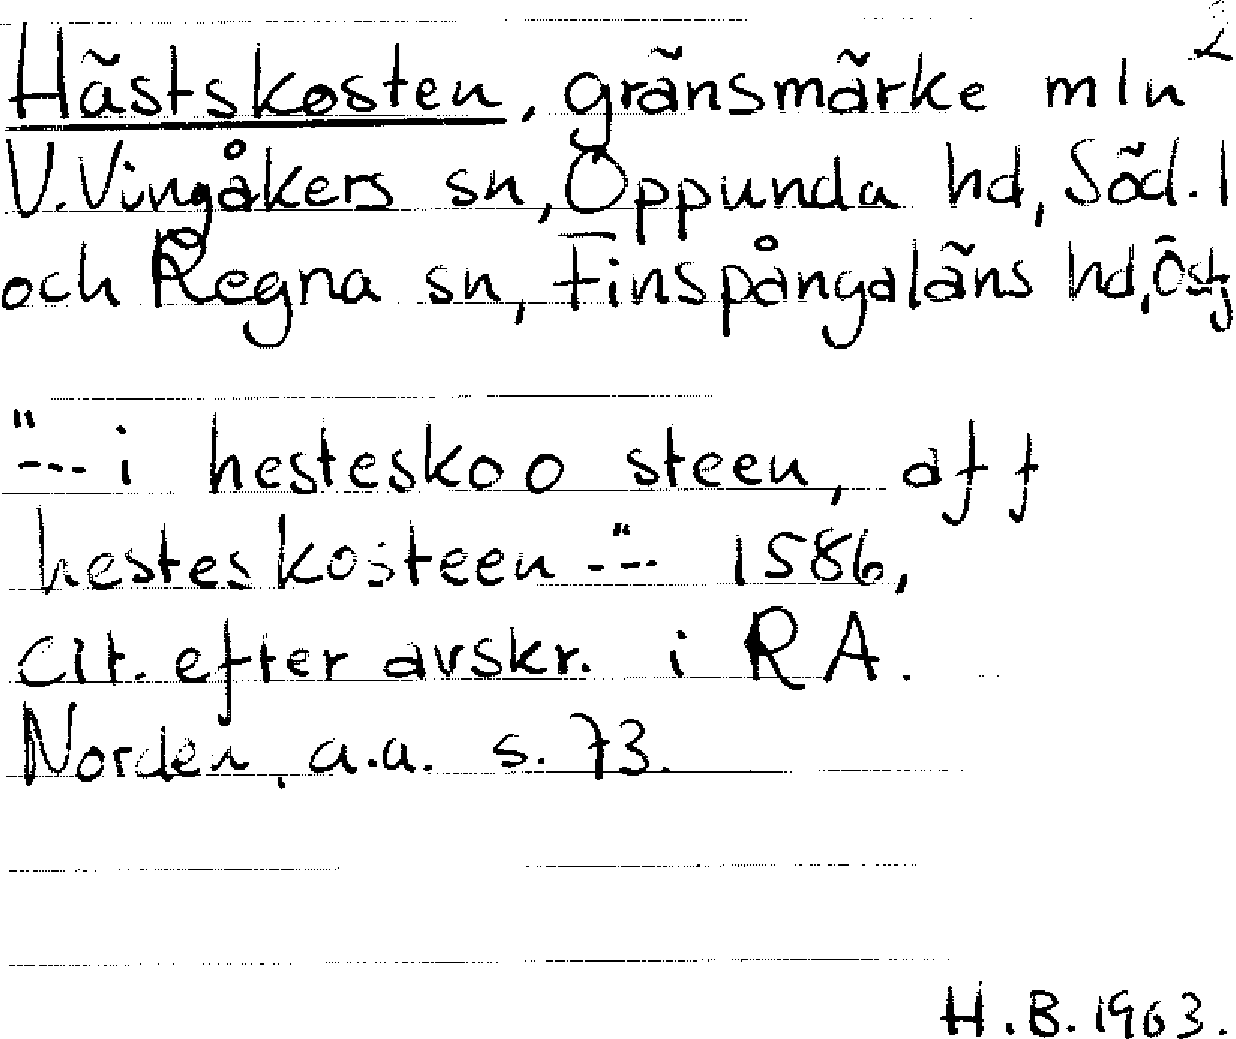 2
Hästskosten, gränsmärke mln
V.Vingåkers sn, Oppunda hd, Söd.l
och Regna sn, Finspångaläns hd, Östg
"--- i hesteskoo steen, aff
hesteskosteen ---" 1586,
cit. efter avskr. i RA.
Norden, a.a. s. 73.
H.B. 1963.